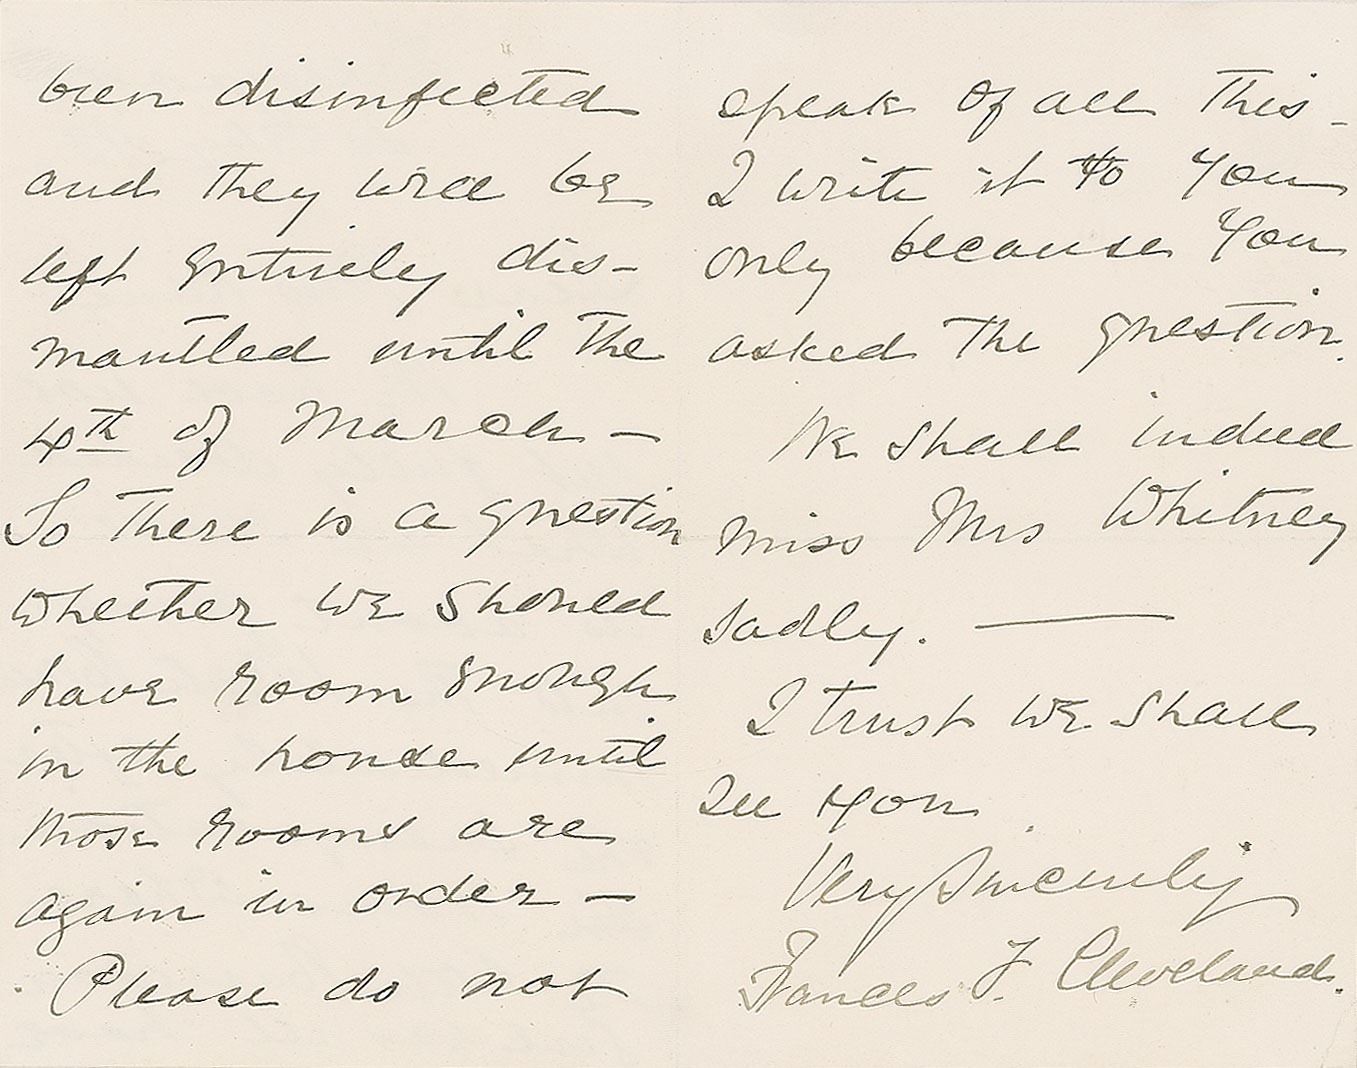 been disinfected
and they will be
left entirely dis-
mantled until the
4th of March —
So there is a question
whether we should
have room enough
in the house until
those rooms are
again in order —
Please do not
speak of all this -
I write it to you
only because you
asked the question.
We shall indeed
miss Mrs Whitney
sadly. —
I trust we shall
see you
Very Sincerely
Frances F. Cleveland.